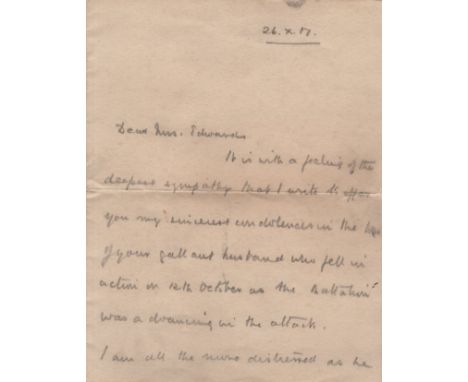 26.X.17.
Dear Mrs. Edwards
It is with a feeling of the
deepest sympathy that I write to offer
you my sincerest condolences in the loss
of your gallant husband who fell in
action on 12th October as the Battalion
was advancing in the attack.
I am all the more distressed as he